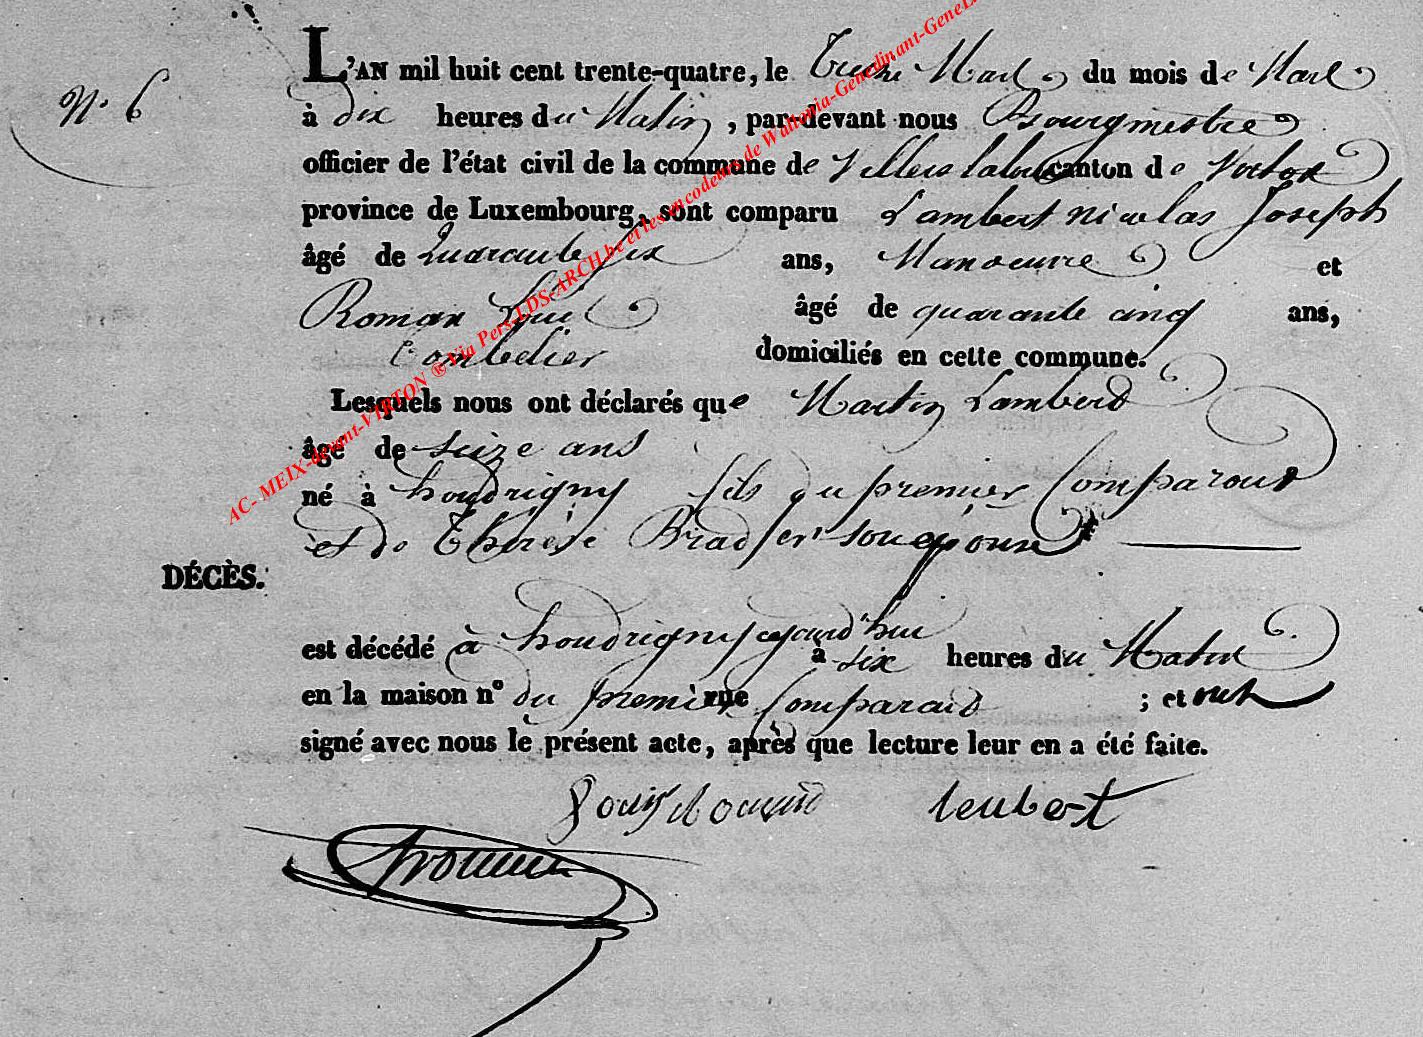 N° 6
L'AN mil huit cent trente-quatre, le Treize Mars du mois de Mars
à dix heures du Matin, par-devant nous Bourgmestre
officier de l'état civil de la commune de Villers la canton de Virton
province de Luxembourg, sont comparu Lambert nicolas Joseph
âgé de quarante six ans, Manoeuvre et
Roman âgé de quarante cinq ans,
domiciliés en cette commune.
Lesquels nous ont déclarés que Martin Lambert
âgé de seize ans
né à houdrigny fils du premier Comparant
et de Thérèse son épouse
DÉCÈS.
est décédé à houdrigny aujourd'hui à six heures du Matin
en la maison n° du premier rue Comparant ; et ont
signé avec nous le présent acte, après que lecture leur en a été faite.
AC- MEIX-devant-VIRTON ® Via Pers-LDS-ARCH.be et les encodeurs de Wallonia-Genedinant-GeneL